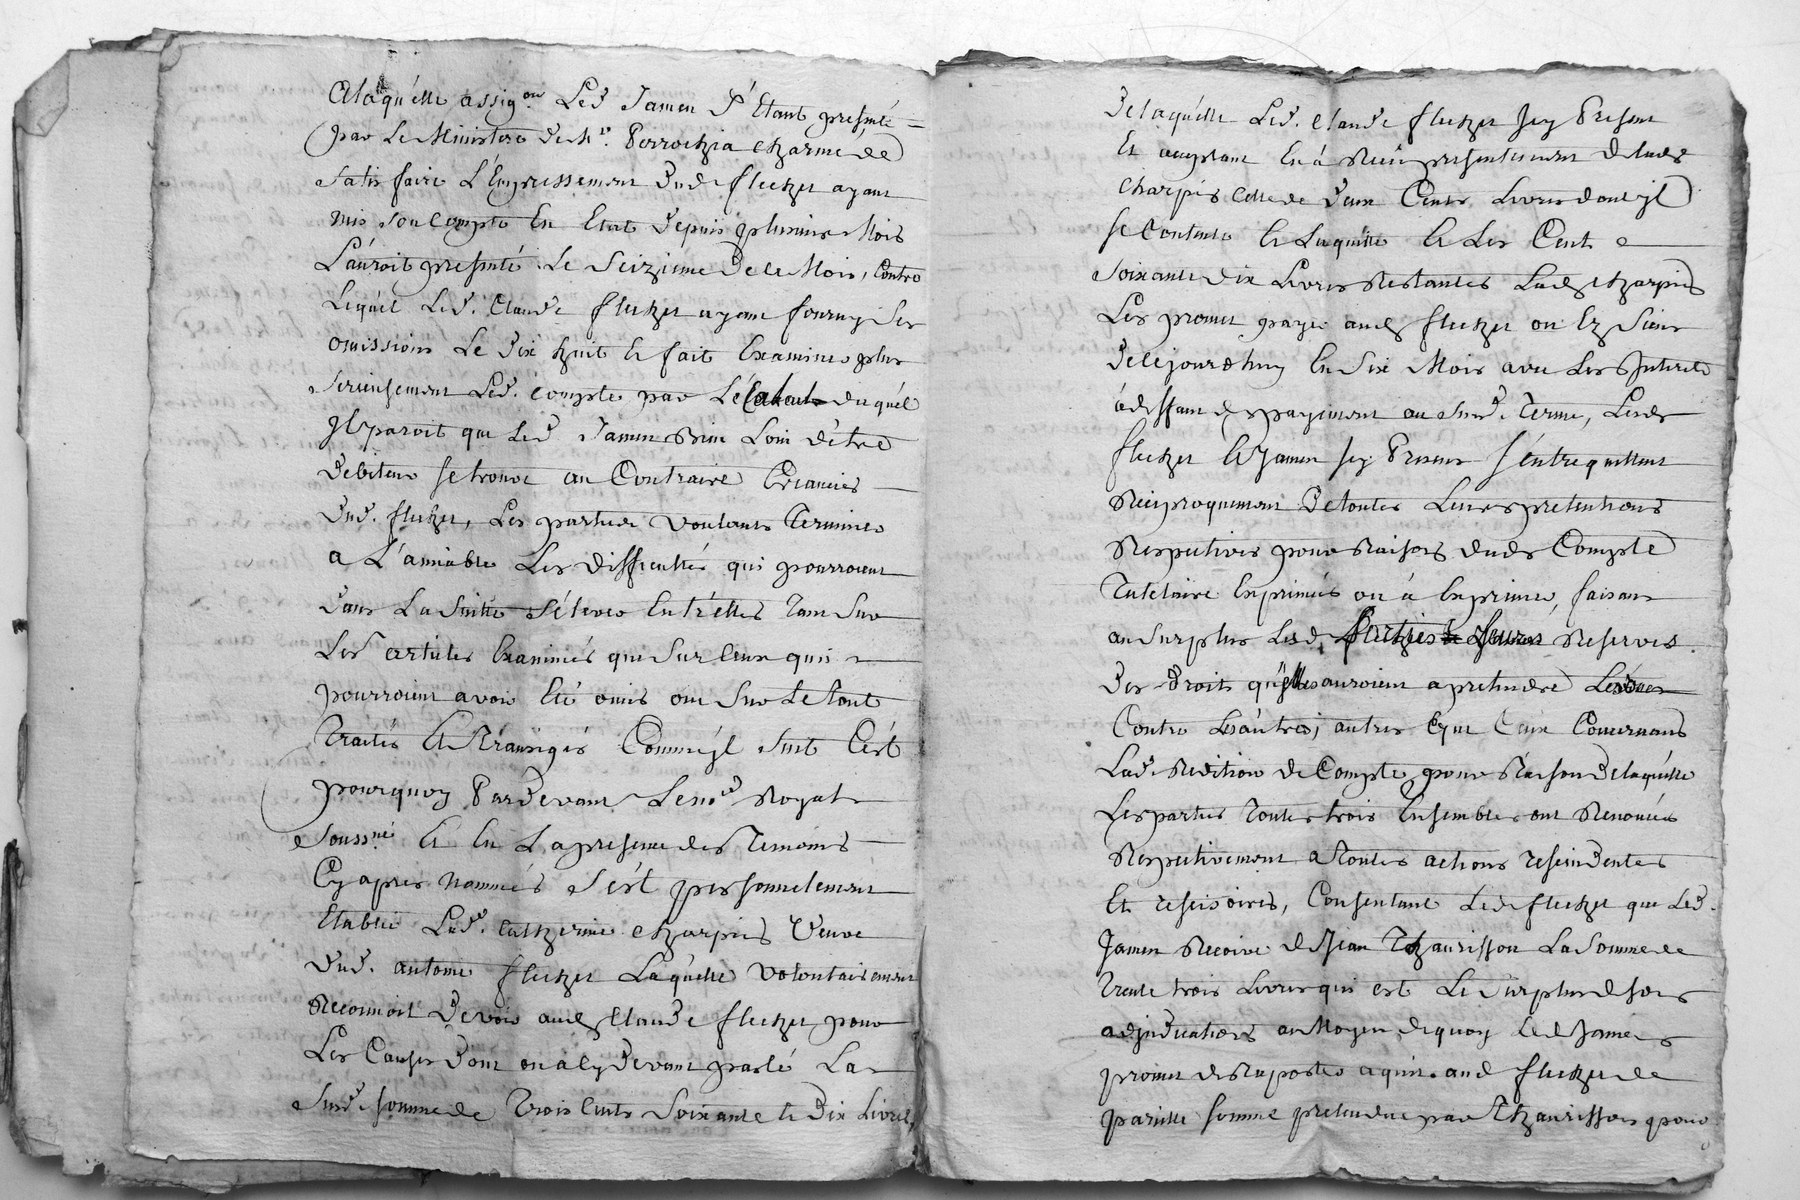 Alaquelle assig.on Led. Jamen S'Etant presenté
par Le Ministere de Mr. Perrochia charmé de
satisfaire L'Empressement dud flechet ayant
mis son compte En Etat depuis plusieurs Mois
L'auroit presenté Le seizieme de ce Mois, contre
Lequel Led. Claude flechet ayant fourny ses
omissions Le dix huit et fait Examiner plus
serieusement Led. compte par Le Calcul duquel
Jl paroit que Led Jamen bien Loin d'être
debiteur se trouve au Contraire Creancier
dud. flechet, Les parties voulants Terminer
a L'amiable Les difficultés qui pourroient
dans La suitte s'élever Entr'elles Tant sur
Les articles Examinés que sur Ceux qui
pourroient avoir Eté omis ont sur Le tout
Traités et Transigés Comme jl suit C'est
pourquoy Pardevant Le no.re Royal
souss.né et En La presence des Temoins
Cy apres nommés s'est personnelement
Etablie Lad. Catherine charpins Veuve
dud. antoine flechet Laquelle volontairement
Reconnoit devoir aud Claude flechet pour
Les Causes dont on a Cy devant parlé La
susd. somme de Trois Cents soixante et dix Livres,
de laquelle Led. Claude flechet jcy Present
Et acceptant En à Reçu presentement de lad
charpins Celle de deux Cents Livres dont jl
se Contente et La quitte et Les Cent
soixante dix Livres Restantes Lad charpins
Les promet payer aud flechet ou Ez siens
de Cejourdhuy En six Mois avec Les Interets
à deffaut de payement au susd. terme, Lesd
flechet et Jamen jcy Presents s'entrequittent
Reciproquement de toutes Leurs pretentions
Respectives pour Raisons dud Compte
Tutelaire Exprimés ou à Exprimer, faisant
au surplus Lesd. flechet Reserves
des droits qu'ils auroient a pretendre Les uns
Contre Les autres, autres que Ceux Concernans
Lad. Redition de Compte pour Raison de laquelle
Les parties Toutes trois Ensembles ont Renoncés
Respectivement a Toutes actions rescindentes
Et rescisoires, Consentant Led flechet que Led.
Jamen Recoive de Jean Thaurisson La somme de
Trente trois Livres qui est Le surplus de ses
adjudications au Moyen dequoy Led Jamen
promet de Raporter aquit aud flechet de
pareille somme pretendue par Thaurisson pour